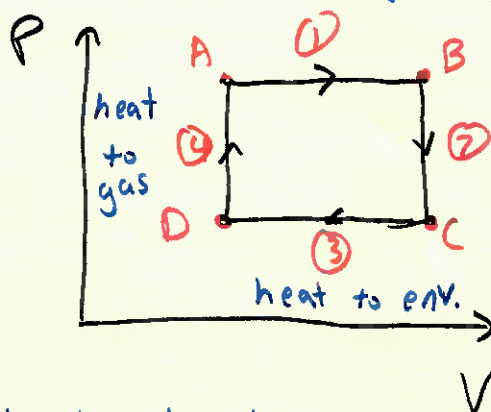 P
①
A
B
heat
to
gas
④
②
D
C
③
heat to env.
V